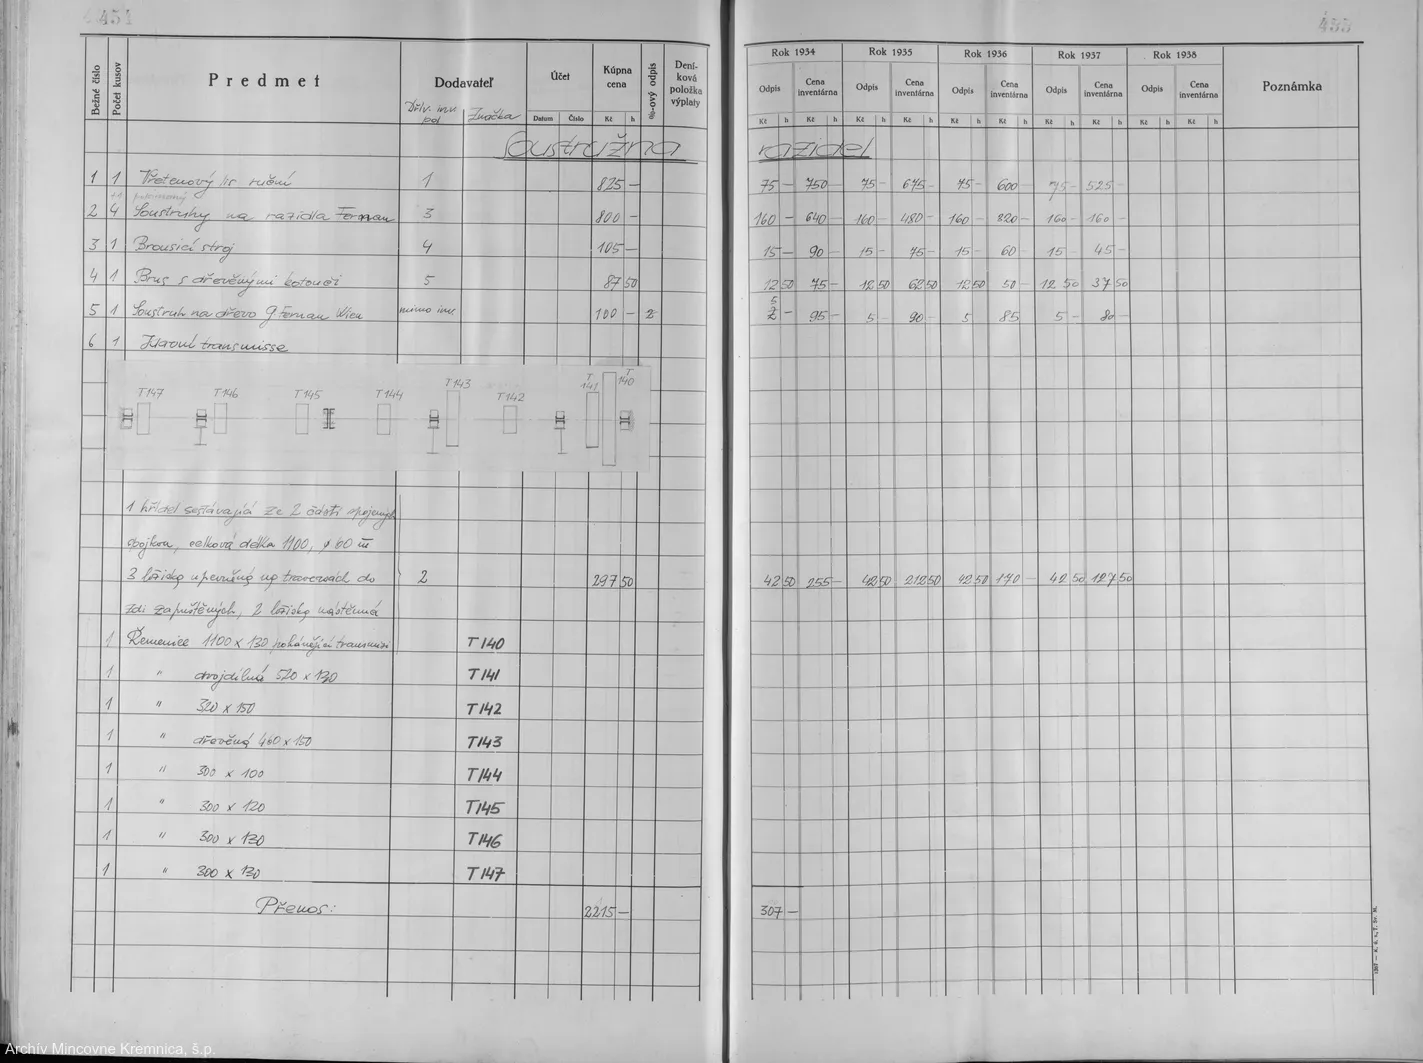 451
433
Bežné číslo Počet kusov Predmet Dodavateľ Účet Kúpna cena %-ový odpis Deníková položka výplaty
Dřív. inv. pol Značka Datum Číslo Kč h
Rok 1934 Rok 1935 Rok 1936 Rok 1937 Rok 1938 Poznámka
Odpis Cena inventárna Odpis Cena inventárna Odpis Cena inventárna Odpis Cena inventárna Odpis Cena inventárna
Kč h Kč h Kč h Kč h Kč h Kč h Kč h Kč h Kč h Kč h
Soustružna razidel
1 1 Vřetenový lis ruční 1 825 — 75 — 750 — 75 — 675 — 75 — 600 — 75 — 525 —
2 4 Soustruhy na razidla 3 800 — 160 — 640 — 160 — 480 — 160 — 320 — 160 — 160 —
3 1 Brousicí stroj 4 105 — 15 — 90 — 15 — 75 — 15 — 60 — 15 — 45 —
4 1 Brus s dřevěnými kotouči 5 87 50 12 50 75 — 12 50 62 50 12 50 50 — 12 50 37 50
5 1 Soustruh na dřevo Wien mimo inv 100 — 5 — 95 — 5 — 90 — 5 85 5 — 80 —
6 1 transmisse
T147 T146 T145 T144 T143 T142 T141 T140
1 hřídel sestávající ze 2 částí spojených
spojkou, celková délka 1100, ø 60 m
3 ložiska upevněná na traversách do 2 297 50 42 50 255 — 42 50 212 50 42 50 170 — 42 50 127 50
zdi zapuštěných, 2 ložiska nástěnná
1 Řemenice 1100 x 130 pohánějící transmisi T140
1 " dvojdílná 520 x 130 T141
1 " 320 x 150 T142
1 " dřevěná 460 x 150 T143
1 " 300 x 100 T144
1 " 300 x 120 T145
1 " 300 x 130 T146
1 " 300 x 130 T147
Přenos: 2215 — 307 —
Archív Mincovne Kremnica, š.p.